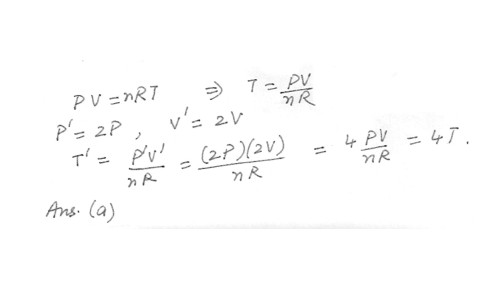 PV = nRT ⇒ T = PV/nR
P' = 2P , V' = 2V
T' = P'V'/nR = (2P)(2V)/nR = 4 PV/nR = 4T.
Ans. (a)